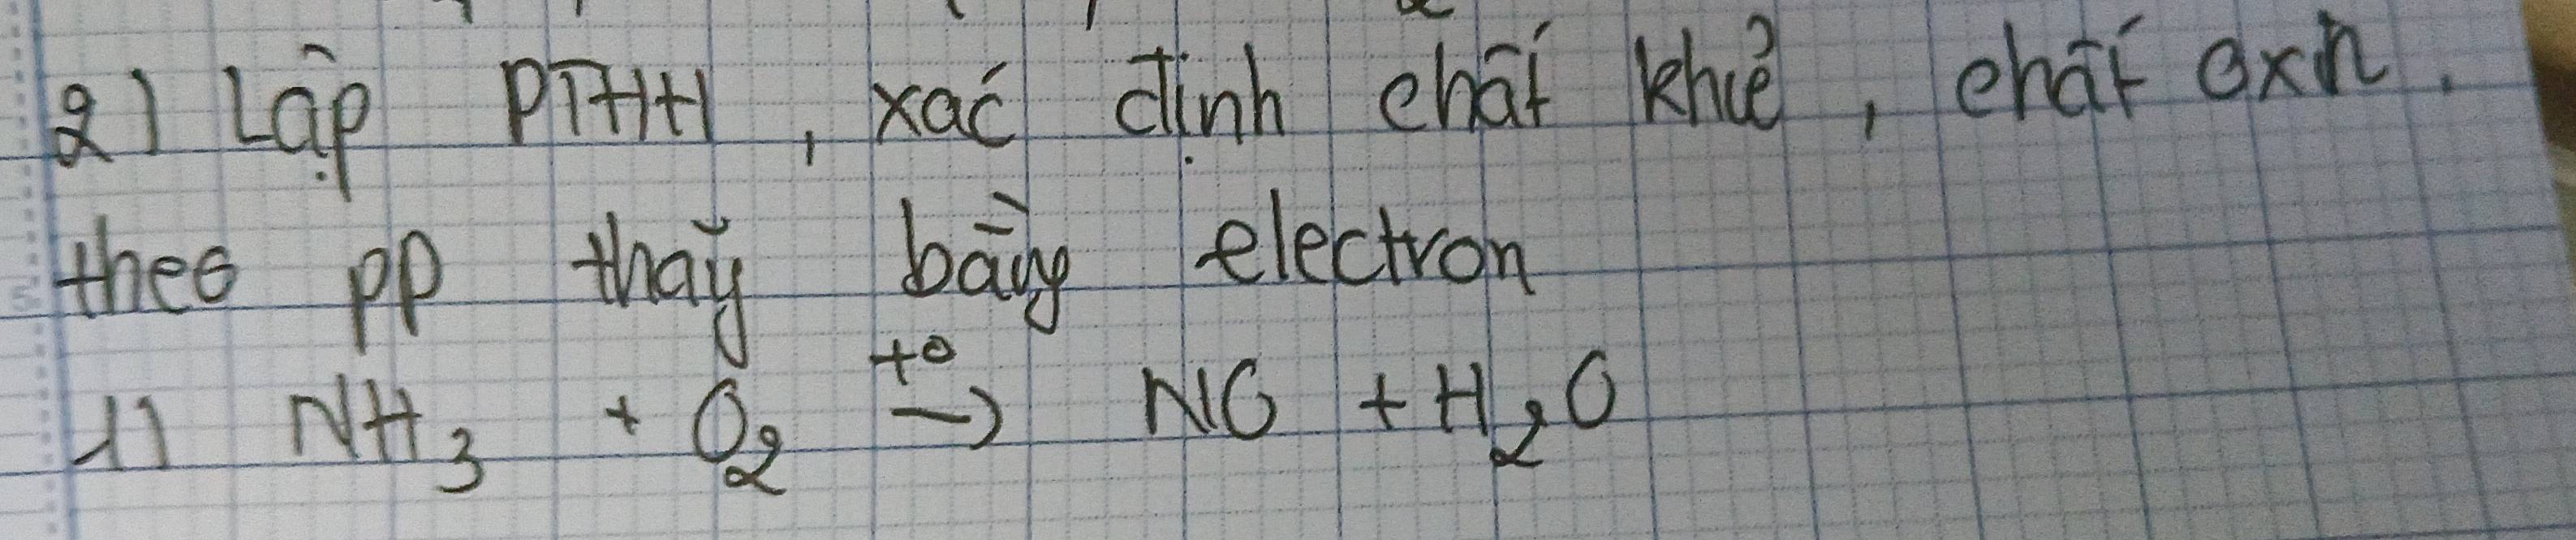 2) Lập PTHH, xác định chất khử, chất oxh.
theo pp thăy bằng electron
1) NH₃ + O₂ t°→ NO + H₂O